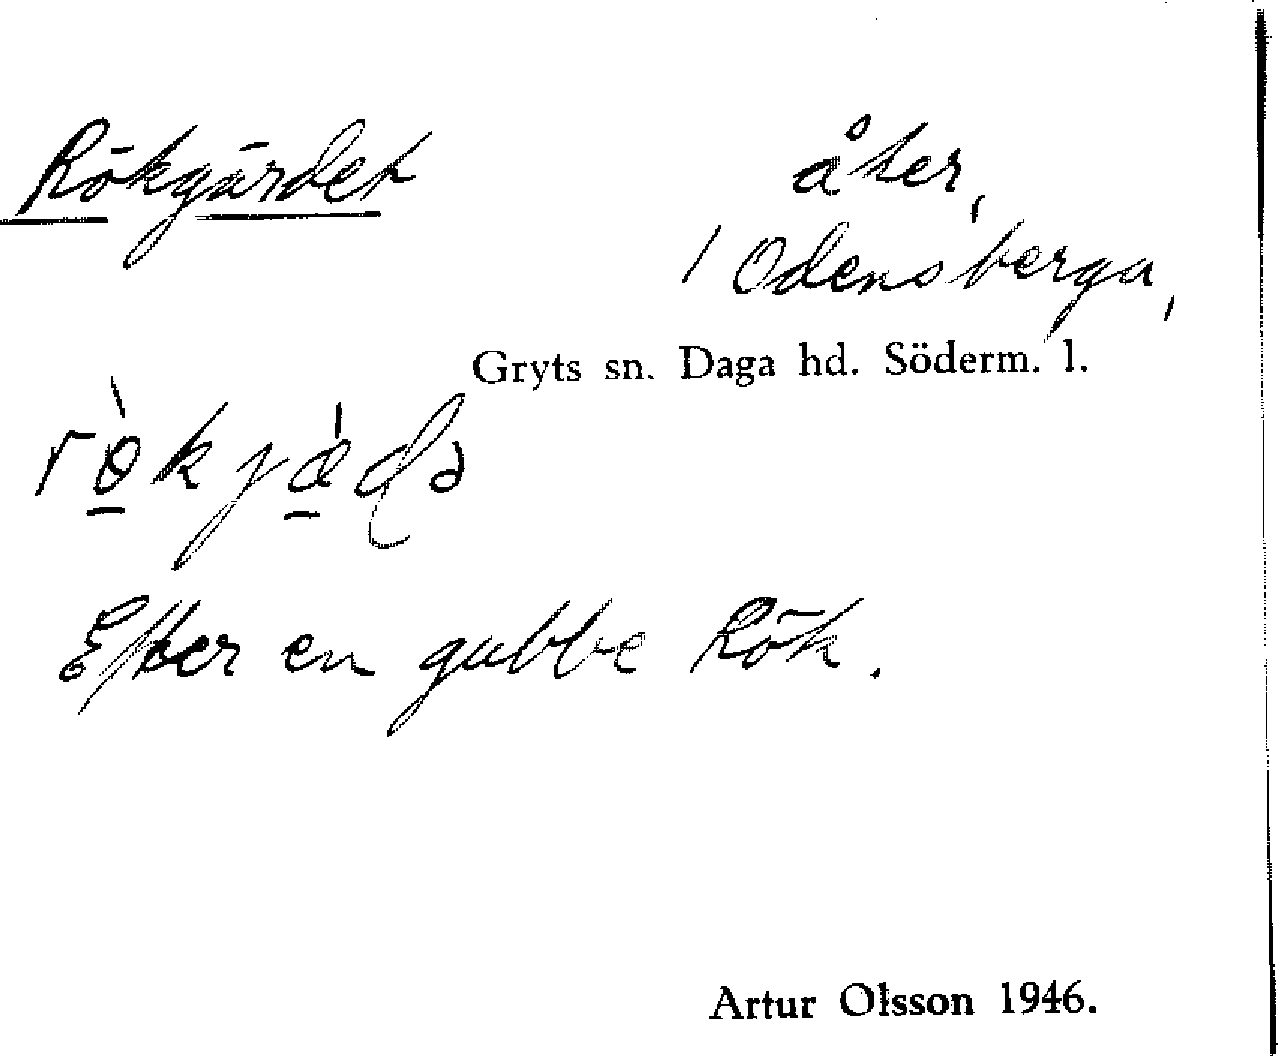 Rökgärdet
åker,
/ Odensberga,
Gryts sn. Daga hd. Söderm. l.
Efter en gubbe Rök.
Artur Olsson 1946.